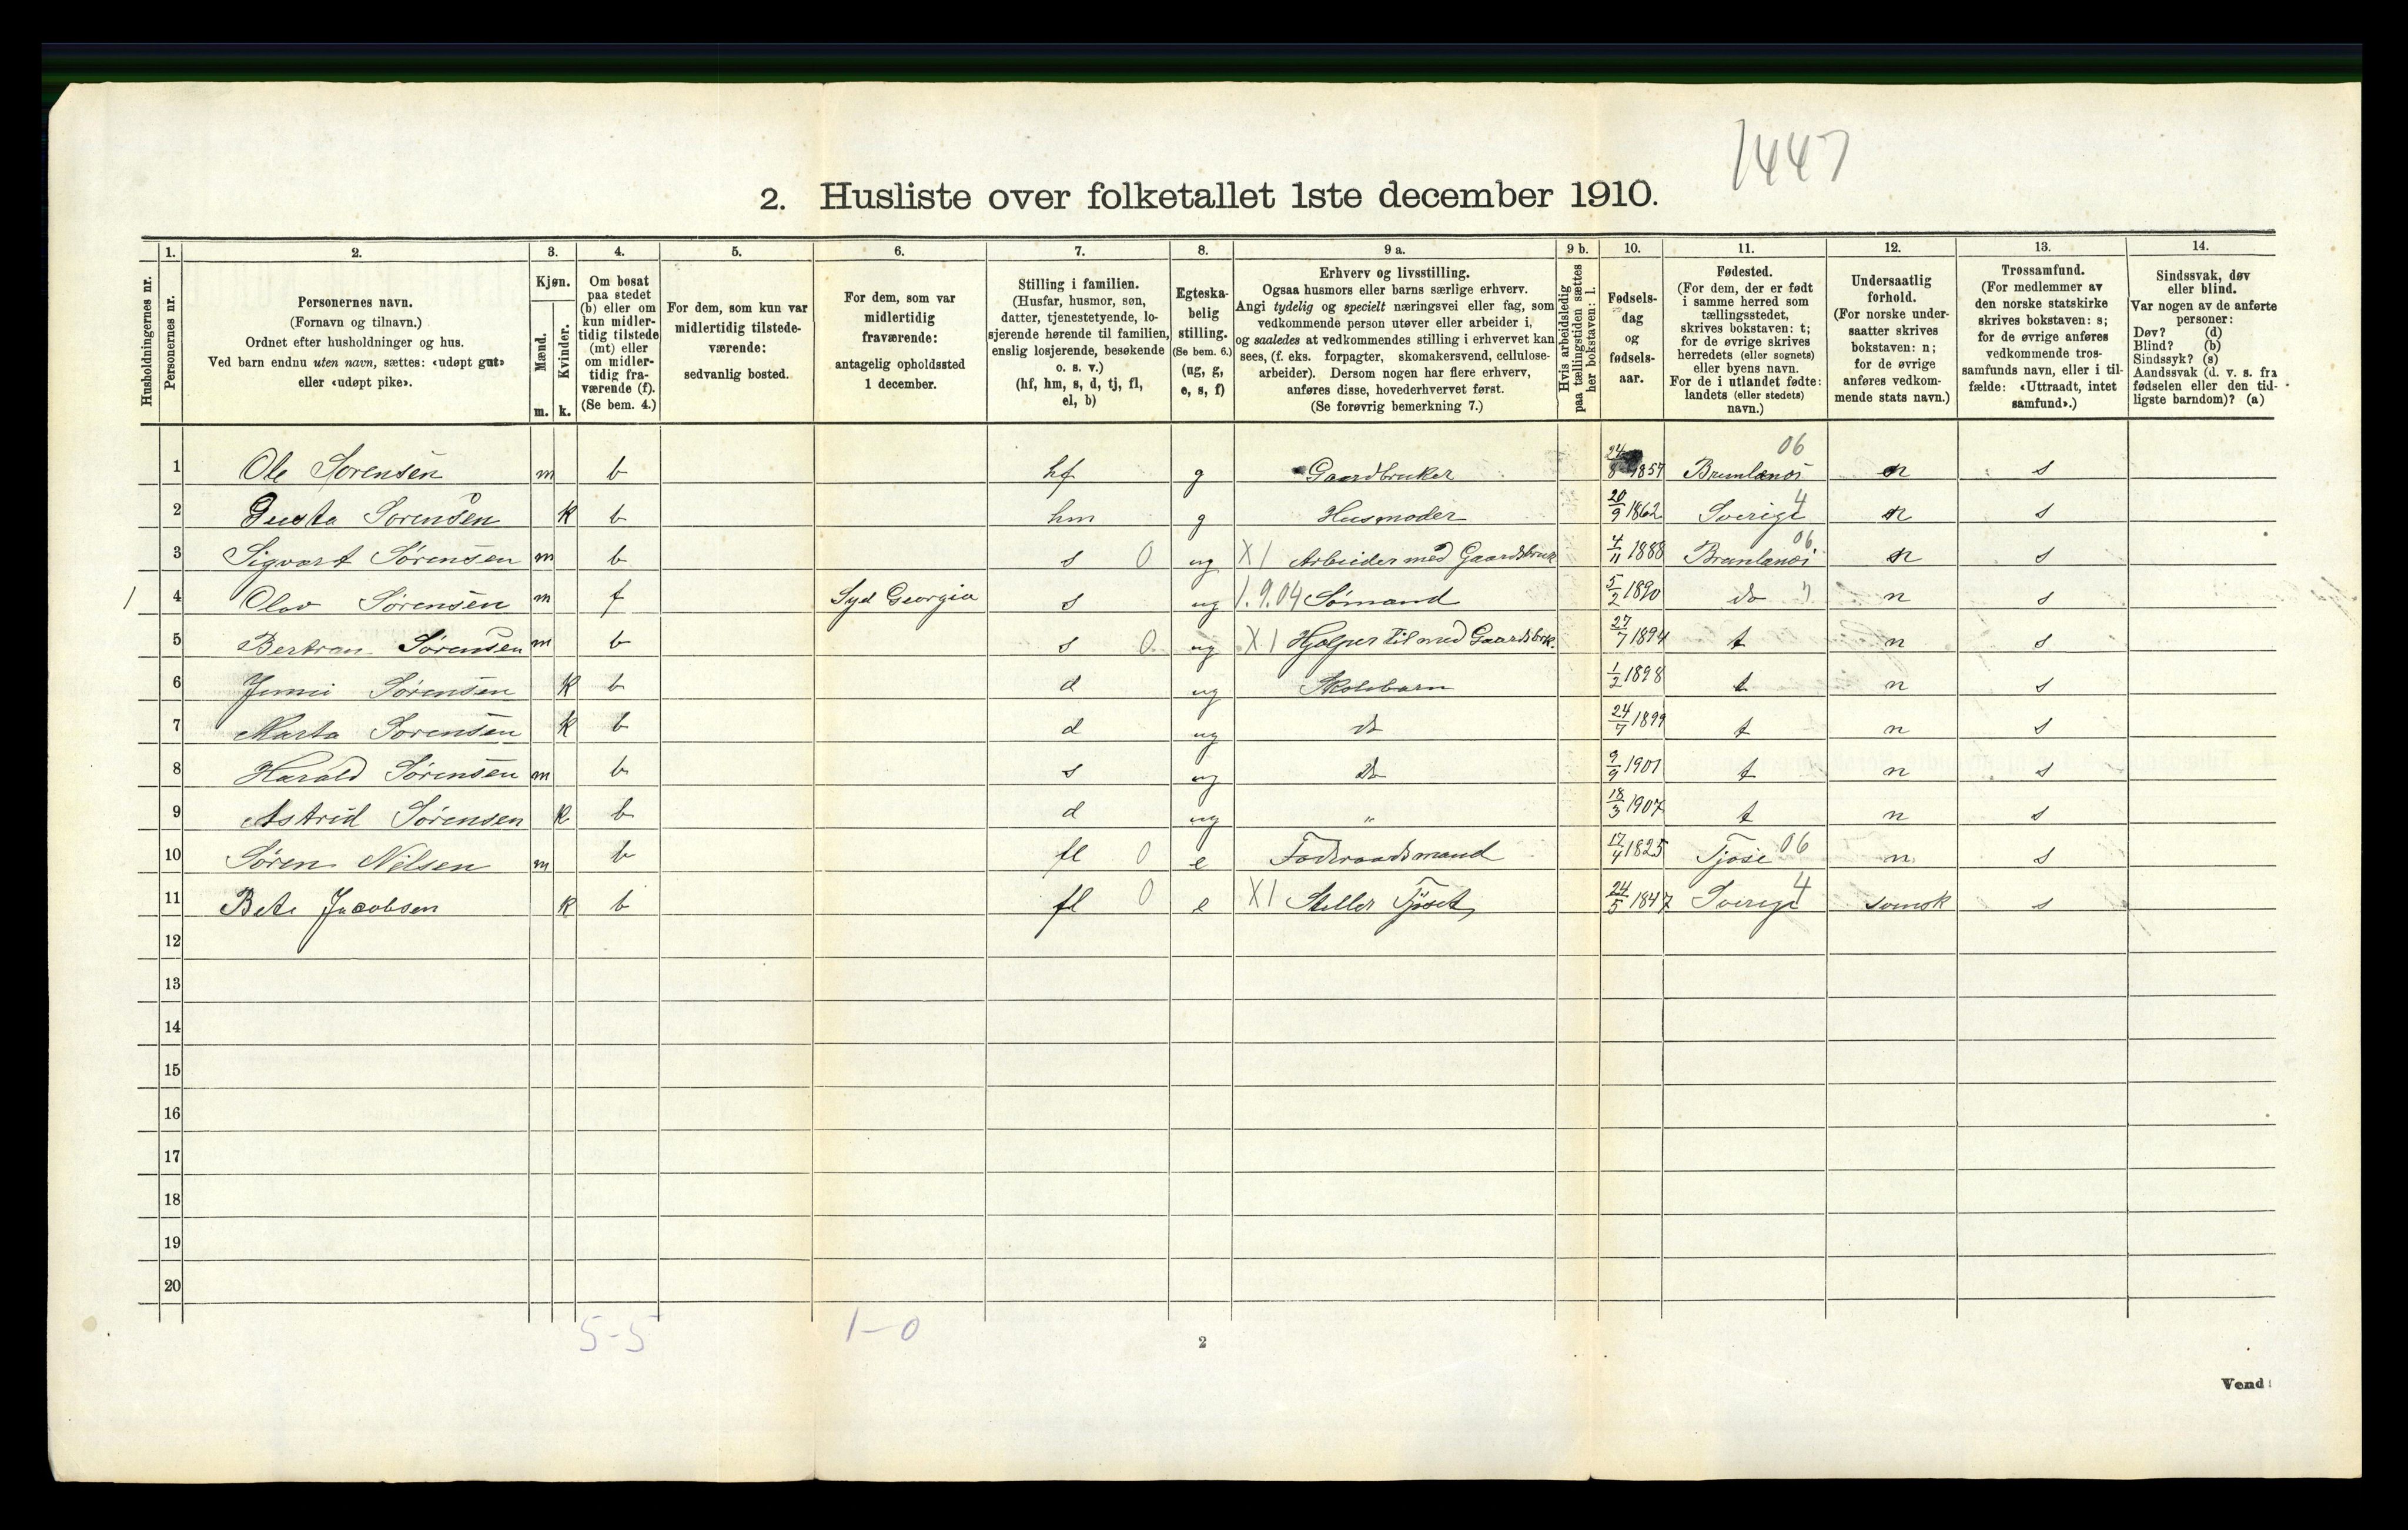 1447
2. Husliste over folketallet 1ste december 1910.
Husholdningernes nr.
1.
Personernes nr.
2.
Personernes navn.
(Fornavn og tilnavn.)
Ordnet efter husholdninger og hus.
Ved barn endnu uten navn, sættes: «udøpt gut»
eller «udøpt pike».
3.
Kjøn.
Mænd.
Kvinder.
m. k.
4.
Om bosat
paa stedet
(b) eller om
kun midler-
tidig tilstede
(mt) eller
om midler-
tidig fra-
værende (f).
(Se bem. 4.)
5.
For dem, som kun var
midlertidig tilstede-
værende:
sedvanlig bosted.
6.
For dem, som var
midlertidig
fraværende:
antagelig opholdssted
1 december.
7.
Stilling i familien.
(Husfar, husmor, søn,
datter, tjenestetyende, lo-
sjerende hørende til familien,
enslig losjerende, besøkende
o. s. v.)
(hf, hm, s, d, tj, fl,
el, b)
8.
Egteska-
belig
stilling.
(Se bem. 6.)
(ug, g,
e, s, f)
9 a.
Erhverv og livsstilling.
Ogsaa husmors eller barns særlige erhverv.
Angi tydelig og specielt næringsvei eller fag, som
vedkommende person utøver eller arbeider i,
og saaledes at vedkommendes stilling i erhvervet kan
sees, (f. eks. forpagter, skomakersvend, cellulose-
arbeider). Dersom nogen har flere erhverv,
anføres disse, hovederhvervet først.
(Se forøvrig bemerkning 7.)
9 b.
Hvis arbeidsledig
paa tællingstiden sættes
her bokstaven: l.
10.
Fødsels-
dag
og
fødsels-
aar.
11.
Fødested.
(For dem, der er født
i samme herred som
tællingsstedet,
skrives bokstaven: t;
for de øvrige skrives
herredets (eller sognets)
eller byens navn.
For de i utlandet fødte:
landets (eller stedets)
navn.)
12.
Undersaatlig
forhold.
(For norske under-
saatter skrives
bokstaven: n;
for de øvrige
anføres vedkom-
mende stats navn.)
13.
Trossamfund.
(For medlemmer av
den norske statskirke
skrives bokstaven: s;
for de øvrige anføres
vedkommende tros-
samfunds navn, eller i til-
fælde: «Uttraadt, intet
samfund».)
14.
Sindssvak, døv
eller blind.
Var nogen av de anførte
personer:
Døv? (d)
Blind? (b)
Sindssyk? (s)
Aandssvak (d. v. s. fra
fødselen eller den tid-
ligste barndom)? (a)
1 Ole Sørensen m b hf g Gaardbruker 24/8 1857 Brunlanes 06 n s
2 Gusta Sorensen k b hm g Husmoder 20/9 1862 Sverige 4 n s
3 Sigvart Sørensen m b s 0 ug X1 Arbeider med Gaardsbruk 4/11 1888 Brunlanes 06 n s
1 4 Olav Sørensen m f Syd Georgia s ug 1.9.04 Sømand 5/2 1890 do " n s
5 Bertran Sørensen m b s 0 ug X1 Hjælper til med Gaardsbrk. 27/7 1894 t n s
6 Jenni Sørensen k b d ug Skolebarn 1/2 1898 t n s
7 Marta Sorensen k b d ug do 24/7 1899 t n s
8 Harald Sørensen m b s ug do 9/9 1901 t n s
9 Astrid Sørensen k b d ug " 18/3 1907 t n s
10 Søren Nilsen m b fl 0 e Føderaadsmand 17/4 1825 Tjøse 06 n s
11 Bete Jacobsen k b fl 0 e X1 Steller Fjøset 24/5 1847 Sverige 4 svensk s
12
13
14
15
16
17
18
19
20
5-5
1-0
2
Vend!